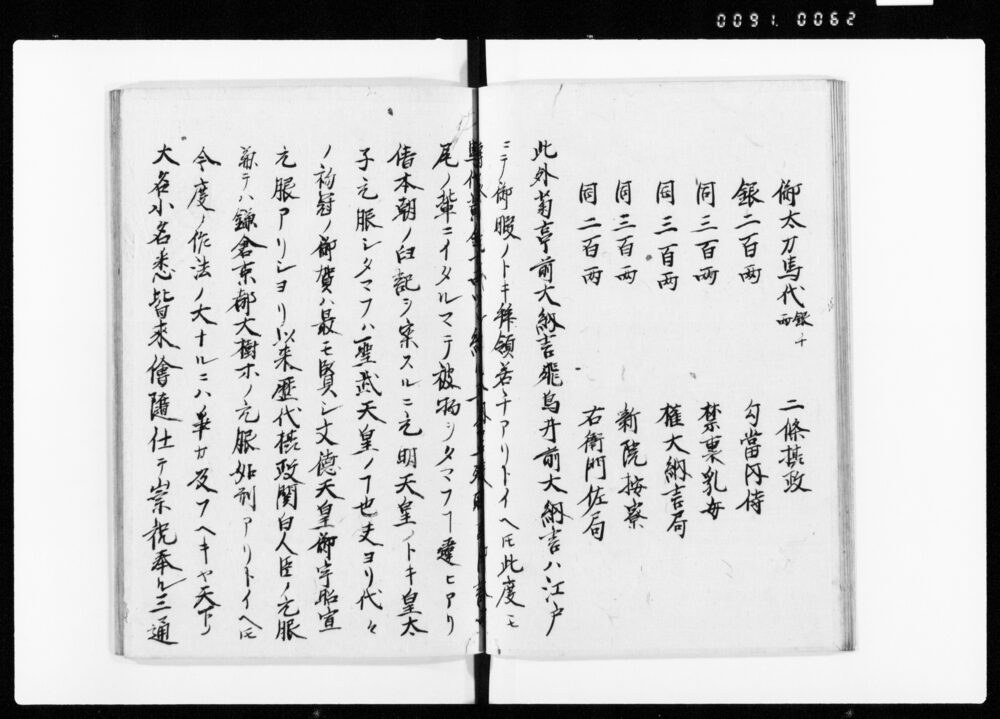 0091.0062
御太刀馬代 銀十両 二條摂政
銀二百両 勾當内侍
同三百両 禁裏乳母
同三百両 権大納言局
同三百両 新院按察
同二百両 右衛門佐局
此外菊亭前大納言飛鳥井前大納言ハ江戸
ニテ御暇ノトキ拝領若干アリトイヘ𪜈此度モ
尾ノ輩ニイタルマテ被物シタマフヿ
僣本朝ノ旧記ヲ案スルニ元明天皇ノトキ皇太
子元服シタマフハ聖武天皇ノヿ也丈ヨリ代々
ノ初冠ノ御賀ハ最モ賢シ文徳天皇御宇昭宣
元服アリシヨリ以来歴代摂政関白人臣ノ元服
並テハ鎌倉京都大樹ホノ元服如形アリトイヘ𪜈
今度ノ作法ノ大ナルニハ争カ及フヘキヤ天下ノ
大名小名悉皆来會随仕テ崇祝奉ル三通